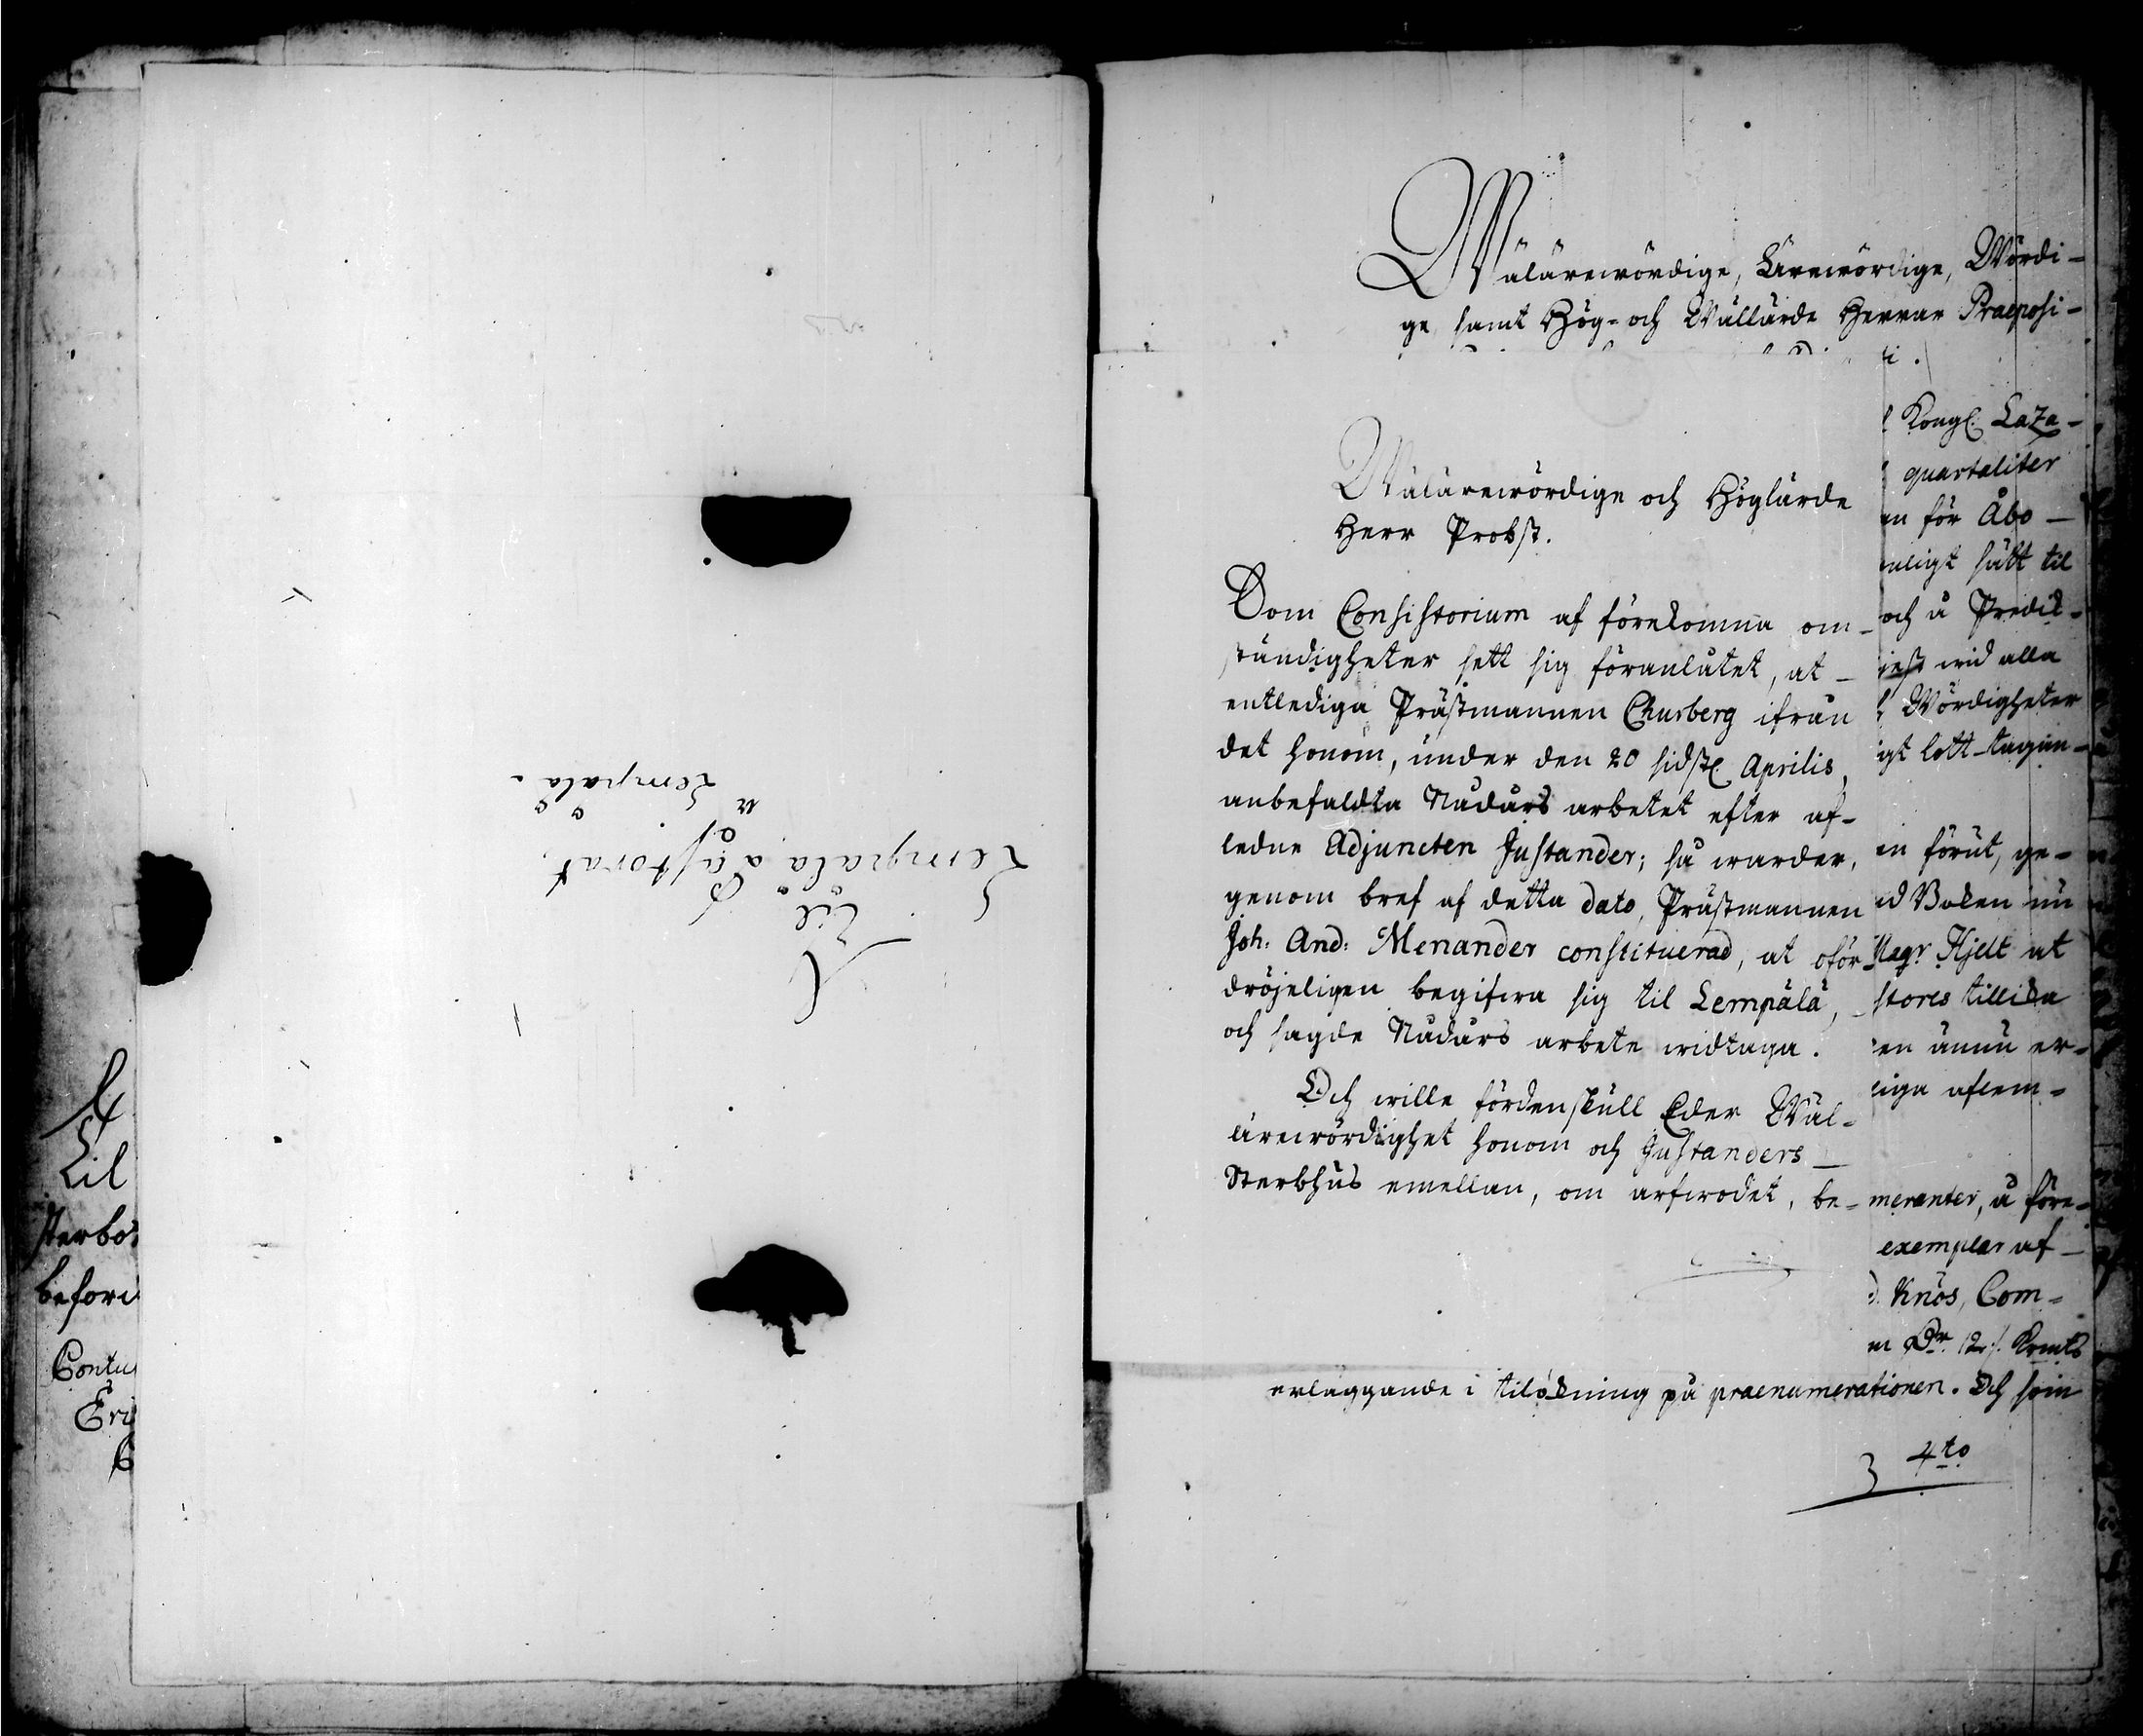 Til
sterbo
befor
Contu
Eri
Til
Lempälä Pastorat,
Lempälä.
Wälärewördige, Ärewördige, Wördi-
ge, samt Hög- och Wällärde Herrar Praeposi-
Wälärewördige och Höglärde
Herr Probst.
Som Consistorium af förekomna om-
ständigheter sett sig föranlåtet, at
entlediga Prästmannen Churberg ifrån
det honom, under den 20 sidstl. Aprilis,
anbefaldta Nådårs arbetet efter af-
ledne Adjuncten Justander; så warder,
genom bref af detta dato, Prästmannen
Joh: And: Menander constituerad, at oför
dröjeligen begifwa sig til Lempälä,
och sagde Nådårs arbete widtaga.
Och wille fördenskull Eder Wäl-
ärewördighet honom och Justanders
Sterbhus emellan, om arfwodet, be-
Kongl. Laza-
quartaliter
en för Åbo
nligt sätt til
och å Predik-
wid alla
Wördigheter
igt lott-tagan-
en förut, ge-
id Boken nu
Magr. Hjelt at
stores tillika
en ännu er-
liga aflem-
meranter, å före-
exemplar af
Knös, Com-
m Dr. 12 s. Krmts
erläggande i tilökning på praenumerationen. Och som
4to